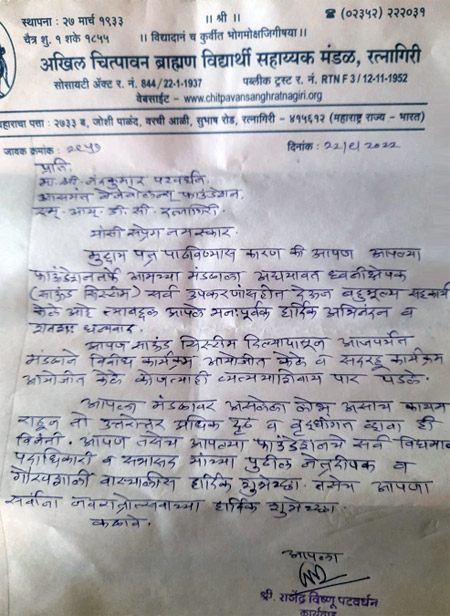 स्थापना : २७ मार्च १९३३
।। श्री ।।
☎ (०२३५२) २२२०३१
चैत्र शु. १ शके १८५५
।। विद्यादानं च कुर्वीत भोगमोक्षजिगीषया ।।
अखिल चित्पावन ब्राह्मण विद्यार्थी सहाय्यक मंडळ, रत्नागिरी
सोसायटी ॲक्ट र. नं. 844 / 22-1-1937
पब्लीक ट्रस्ट र. नं. RTN F 3 / 12-11-1952
वेबसाईट - www.chitpavansanghratnagiri.org
पत्ता : २७३३ ब, जोशी पाळंद, वरची आळी, सुभाष रोड, रत्नागिरी - ४१५६१२ (महाराष्ट्र राज्य - भारत)
जावक क्रमांक :
दिनांक : 22/९/2022
प्रति,
मा. श्री. नंदकुमार पटवर्धन
फाउंडेशन,
एम्. आय्. डी. सी. रत्नागिरी.
यांसी सप्रेम नमस्कार.
मुद्दाम पत्र पाठविण्यास कारण की आपण आपल्या
फाउंडेशनतर्फे आमच्या मंडळाला अद्ययावत ध्वनीक्षेपक
(साऊंड सिस्टीम) सर्व उपकरणांसहीत देऊन बहुमूल्य सहकार्य
केले आहे त्याबद्दल आपले मनःपूर्वक हार्दिक अभिनंदन व
शतशः धन्यवाद.
आपण साऊंड सिस्टीम दिल्यापासून आजपर्यंत
मंडळाने विविध कार्यक्रम आयोजीत केले व सदरहू कार्यक्रम
आयोजीत केले व पार पडले.
आपला मंडळावर असलेला लोभ असाच कायम
राहून तो उत्तरोत्तर अधिक दृढ व वृद्धींगत व्हावा ही
विनंती. आपण तसेच आपल्या फाउंडेशनचे सर्व विद्यमान
पदाधिकारी व सभासद यांच्या पुढील नेत्रदीपक व
गौरवशाली वाटचालीस हार्दिक शुभेच्छा. तसेच आपणा
सर्वांना नवरात्रोत्सवाच्या हार्दिक शुभेच्छा.
कळावे.
आपला
श्री. राजेंद्र विष्णू पटवर्धन
कार्यवाह